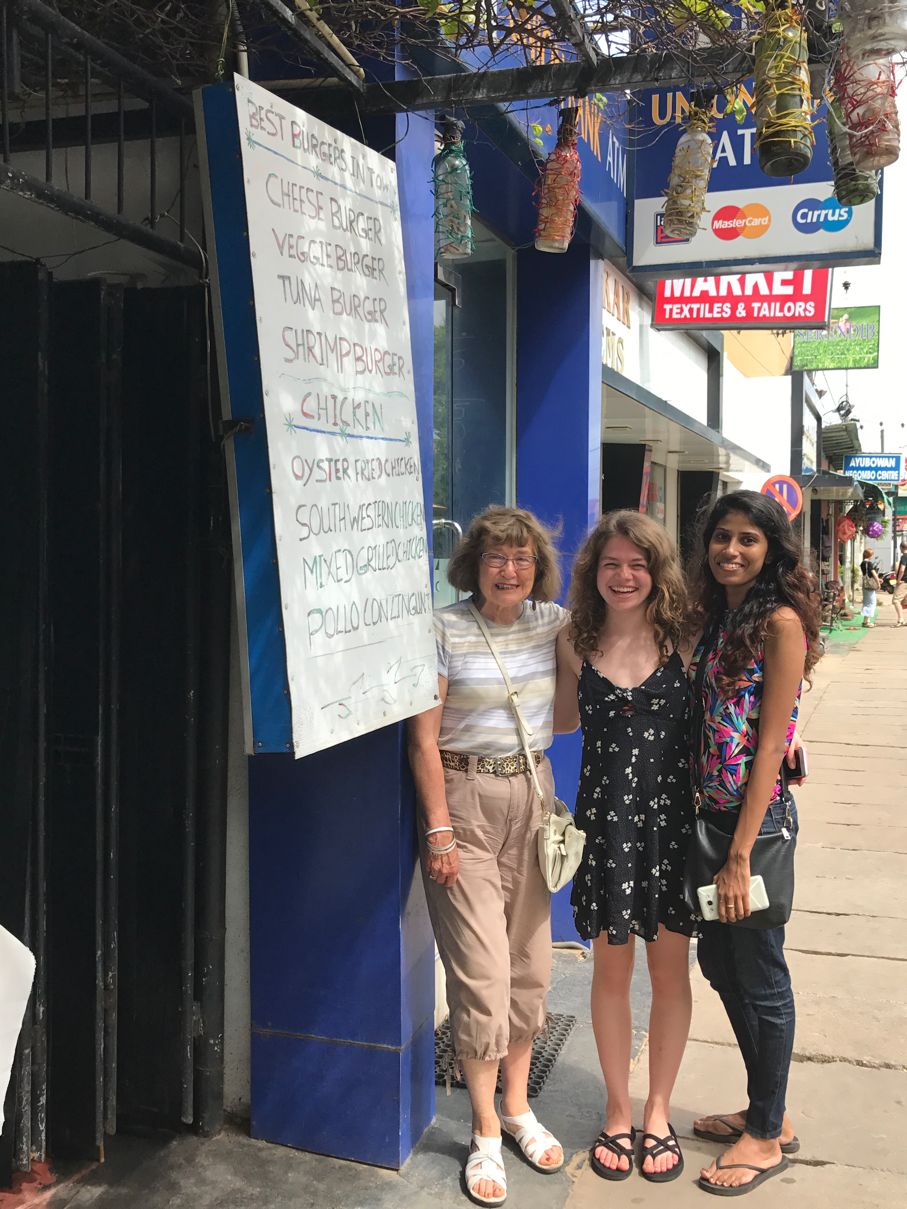 BEST BURGERS IN TOWN
CHEESE BURGER
VEGGIE BURGER
TUNA BURGER
SHRIMP BURGER
CHICKEN
OYSTER FRIED CHICKEN
SOUTHWESTERN CHICKEN
MIXED GRILLED CHICKEN
POLLO CON
ATM
UNION
AT
MasterCard
Cirrus
MARKET
TEXTILES & TAILORS
AYUBOWAN
NEGOMBO CENTRE